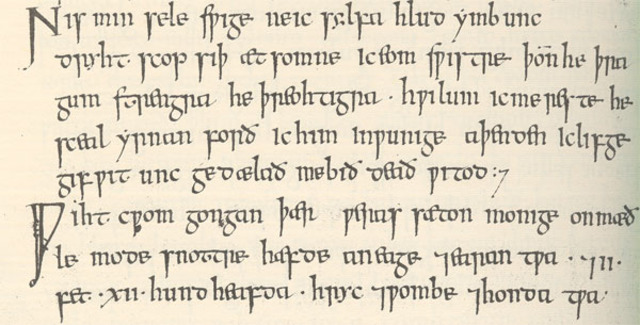 Nis min sele sƿige ne ic sylfa hlud ymb unc
dryht scop siþ ætsomne ic eom sƿiftre þon̄ he þra
gum strengra he þreohtigra · hƿilum ic me reste he
sceal yrnan forð ic him inƿunige a þenden ic lifge
gif ƿit unc gedælað me bið deað ƿitod :⁊
Ƿiht cƿom gongan þær ƿeras sæton monige on mæð
le mode snottre hæfde an eage ⁊ earan tƿa · ⁊ ii ·
fet · xii · hund heafda · hryc ⁊ ƿombe ⁊ honda tƿa